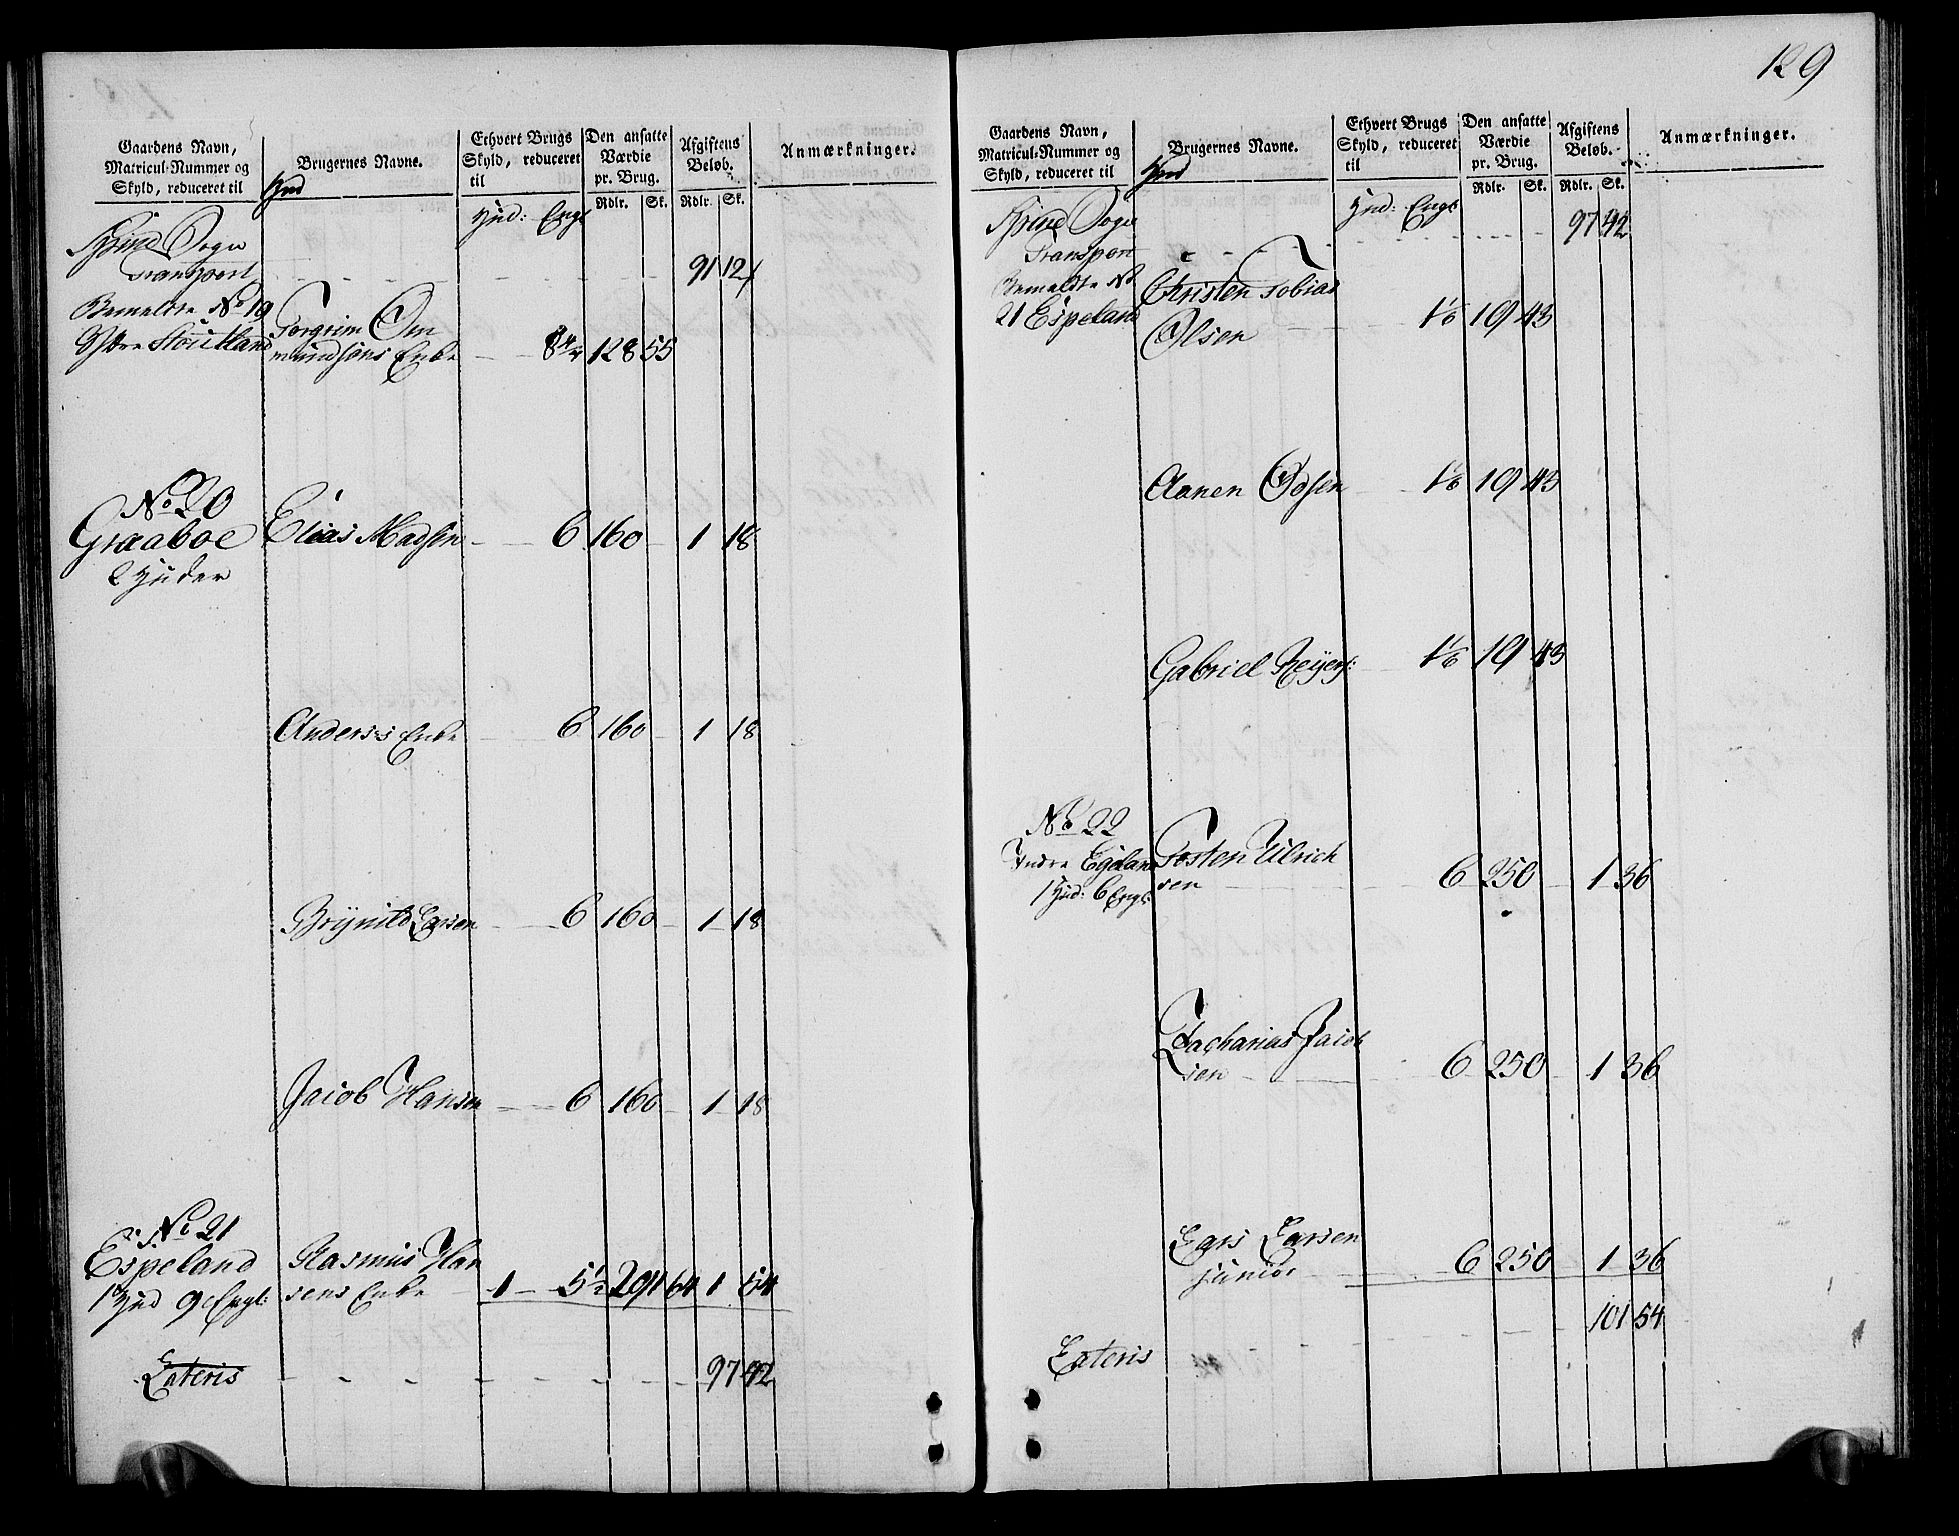 129
Gaardens Navn, Matricul-Nummer og Skyld, reduceret til Hud
Brugernes Navne.
Ethvert Brugs Skyld, reduceret til
Den ansatte Værdie pr. Brug.
Afgiftens Beløb.
Anmærkninger.
Hud: Engl
Rdlr. Sk. Rdlr. Sk.
Spind Sogn
Transport 91 12
Bemeldte No 19 Torgrim Om
Østre mundsøns Enke 128 55
No 20
Graaboe Elias Madsen 6 160 1 18
2 Huder
Anders's Enke 6 160 1 18
Brynild Larsen 6 160 1 18
Jacob Hansen 6 160 1 18
No 21
Espeland Rasmus Han
1 Hud 9 Engl: sens Enke 1 5½ 291 64 1 54
Lateris 97 42
Gaardens Navn, Matricul-Nummer og Skyld, reduceret til Hud
Brugernes Navne.
Ethvert Brugs Skyld, reduceret til
Den ansatte Værdie pr. Brug.
Afgiftens Beløb.
Anmærkninger.
Hud: Engl
Rdlr. Sk. Rdlr. Sk.
Spind Sogn
Transport 97 42
Bemeldte No Christen Tobias
21 Espeland Olsen 19 43
Aanen 19 43
Gabriel Reyers: 19 43
No 22
Indre Egeland Tosten Ulrich
1 Hud: 6 Engl: sen 6 250 1 36
Zacharias Jacob
sen 6 250 1 36
Lars Larsen
junior 6 250 1 36
101 54
Lateris